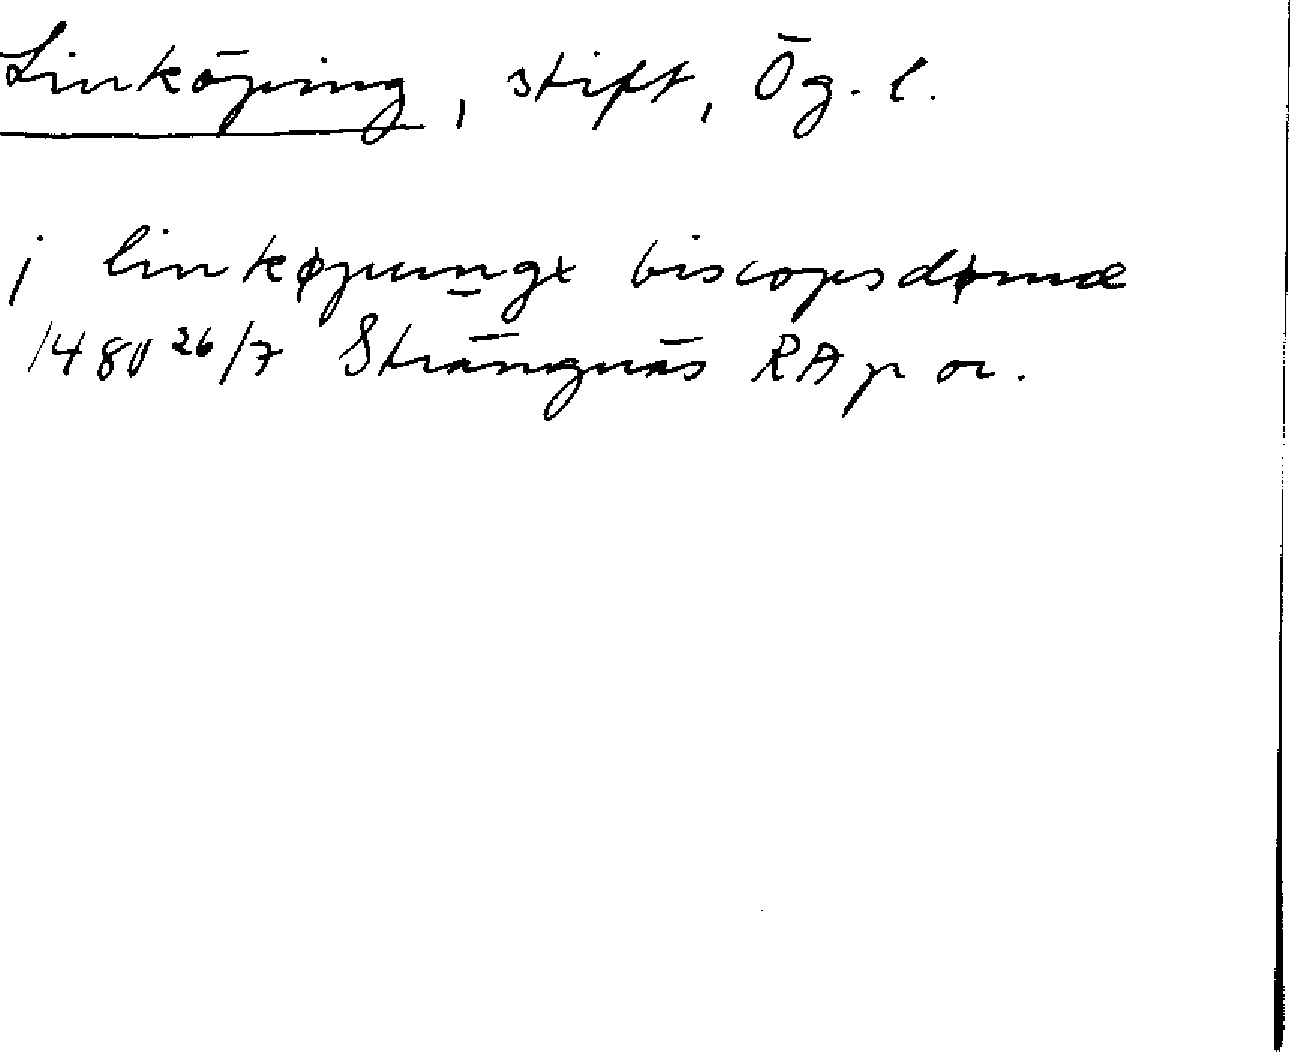 Linköping, stift, Ög. l.
j linkøpungx biscopsdømæ
1480 26/7 Strängnäs RAp or.